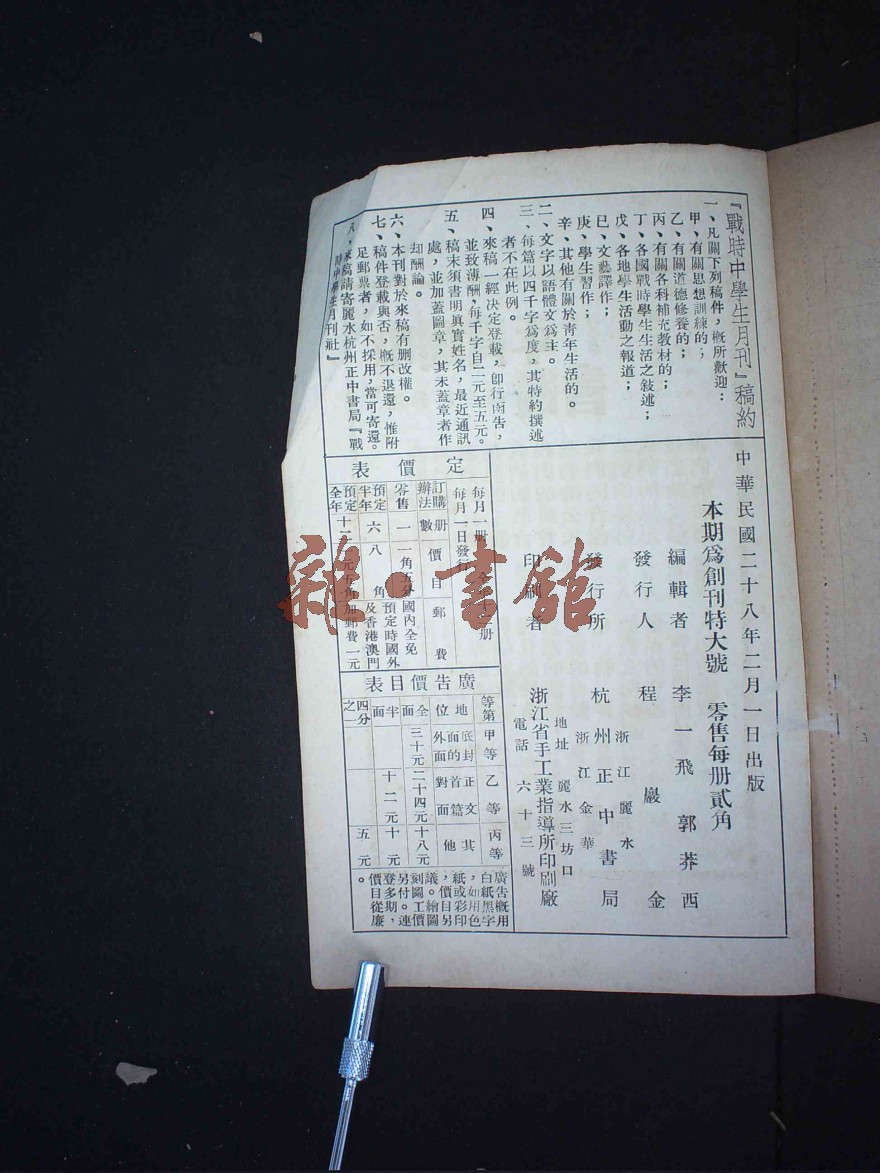 『戰時中學生月刊』稿約
一、凡關下列稿件，概所歡迎：
甲、有關思想訓練的；
乙、有關道德修養的；
丙、有關各科補充教材的；
丁、各國戰時學生生活之敍述；
戊、各地學生活動之報道；
巳、文藝譯作；
庚、學生習作；
辛、其他有關於靑年生活的。
二、文字以語體文爲主。
三、每篇以四千字爲度，其特約撰述
者不在此例。
四、來稿一經决定登載，卽行函告，
並致薄酬，每千字自二元至五元。
五、稿末須書明眞實姓名，最近通訊
處，並加蓋圖章，其未蓋章者作
却酬論。
六、本刊對於來稿有删改權。
七、稿件登載與否，概不退還，惟附
足郵票者，如不採用，當可寄還。
八、來稿請寄麗水杭州正中書局『戰
時中學生月刊社』
中華民國二十八年二月一日出版
本期爲創刊特大號　零售每册貳角
編輯者　李一飛　郭莽西
發行人　程　巖　金
浙江麗水
發行所　杭州正中書局
浙江金華
地址　麗水三坊口
印刷者　浙江省手工業指導所印刷廠
電話　六十三號
定價表
每月一册　全年十二册
每月一日發行
訂購辦法　册數　價目　郵費
零售　一　一角五分　國內全免
預定半年　六　八角　預定時國外
預定全年　十二　元五角　及香港澳門加郵費一元
廣告價目表
等第　甲等　乙等　丙等
地位　底封面的外面　正文首篇對面　其他
全面　三十元　二十四元　十八元
半面　十二元　十元
四分之一　五元
廣告概用
白紙黑字
，如用色
紙或彩印
，價目另
議。繪圖
刻圖工價
另付。連
登多期，
價目從廉
。
雜·書館